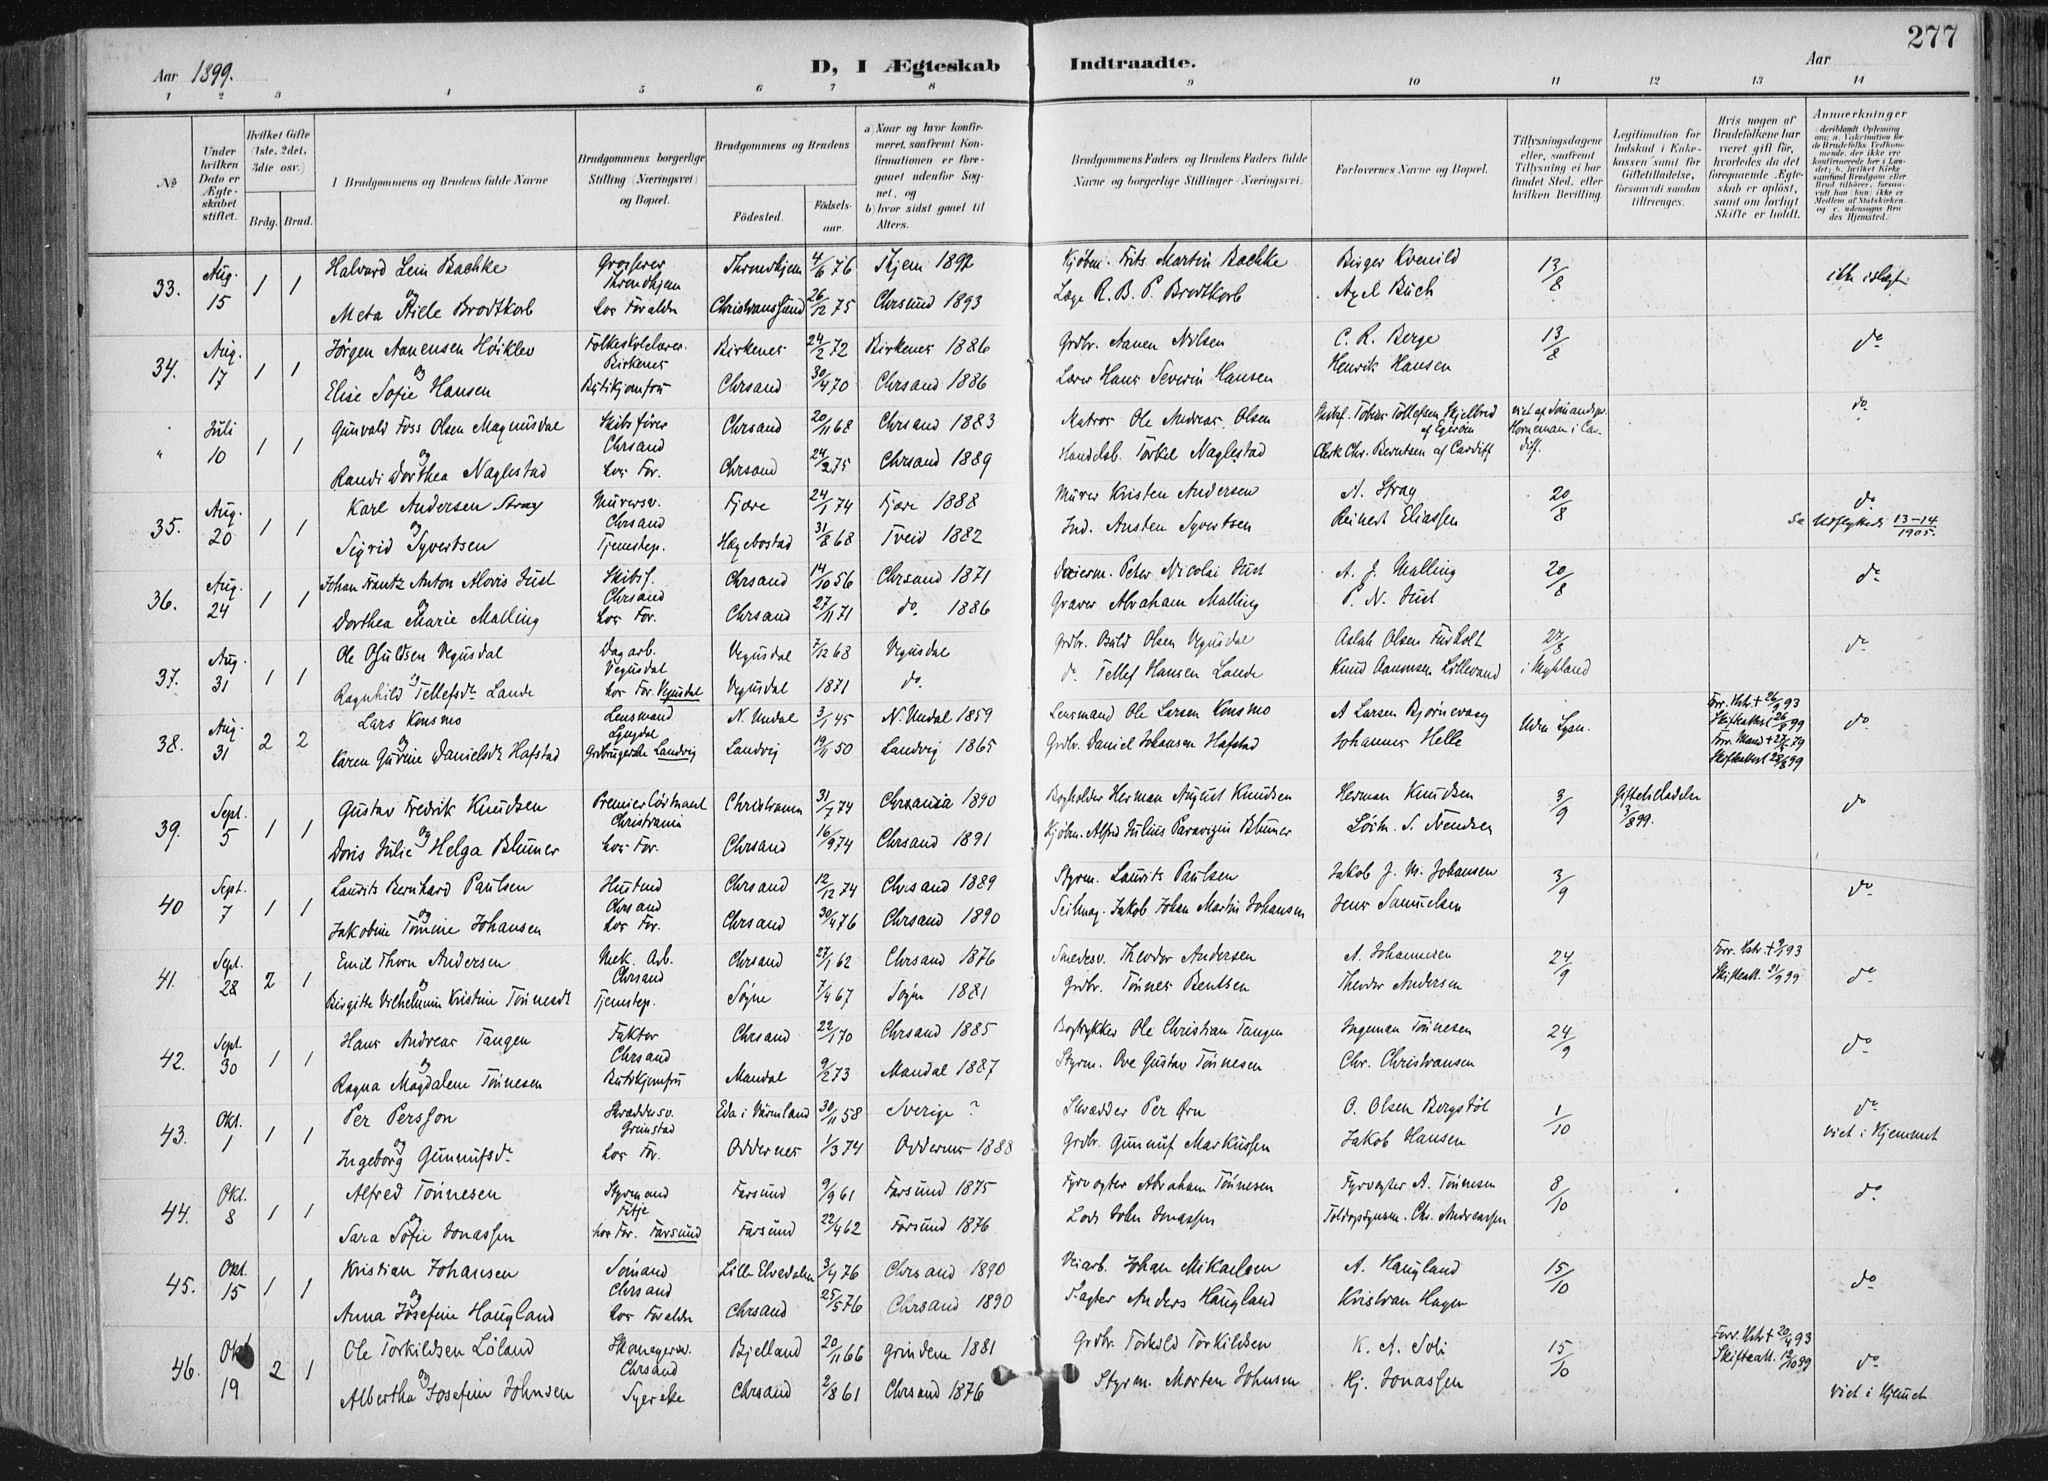 277
Aar 1899. D, I Ægteskab Indtraadte. Aar
1 2 3 4 5 6 7 8 9 10 11 12 13 14
No
Under hvilken Dato er Ægteskabet stiftet.
Hvilket Gifte (1ste, 2det, 3die osv.)
Brdg. Brud.
Brudgommens og Brudens fulde Navne
Brudgommens borgerlige Stilling (Næringsvei) og Bopæl.
Brudgommens og Brudens
Fødested. Fødselsaar.
a) Naar og hvor konfirmeret, saafremt Konfirmationen er foregaaet udenfor Sognet, og
b) hvor sidst gaaet til Alters.
Brudgommens Faders og Brudens Faders fulde Navne og borgerlige Stillinger (Næringsvei).
Forlovernes Navne og Bopæl.
Tillysningsdagene eller, saafremt Tillysning ei har fundet Sted, efter hvilken Bevilling.
Legitimation for Indskud i Enkekassen samt for Giftetilladelse, forsaavidt saadan tiltrænges.
Hvis nogen af Brudefolkene har været gift før, hvorledes da det foregaaende Ægteskab er opløst, samt om lovligt Skifte er holdt.
Anmerkninger
33. Aug. 15 1 1 Halvard Lein Bachke Grosserer Throndhjem Throndhjem 4/6 76 Thjem 1892 Kjøbm. Frits Martin Bachke Birger Kvenild 13/8
og Meta Biele Brodtkorb hos Forældr Christianssund 26/12 75 Chrsund 1893 Læge R. B. P. Brodtkorb Axel Buch
34. Aug. 17 1 1 Jørgen Aanensen Høiklev Folkeskolelærer Birkenes Birkenes 24/2 72 Birkenes 1886 Grdbr. Aanen Nilsen C. R. Berge 13/8 do
og Elise Sofie Hansen Butikjomfru Chrsand 30/4 70 Chrsand 1886 Lærer Hans Severin Hansen Henrik Hansen
" Juli 10 1 1 Gunvald Foss Olsen Magnusdal Skibsfører Chrsand Chrsand 20/11 68 Chrsand 1883 Matros Ole Andreas Olsen Skibsf. Tobias Tollefsen Skjelbred af Egerøen viet af Sømandspr. Horneman i Cardiff. do
og Randi Dorthea Naglestad hos For. Chrsand 24/2 75 Chrsand 1889 Handelsb. Torkel Naglestad Clerk Chr. Berntsen af Cardiff
35. Aug. 20 1 1 Karl Andersen Stray Murersv. Chrsand Fjære 24/1 74 Fjære 1888 Murer Kristen Andersen A. Stray 20/8 do
og Sigrid Syvertsen Tjenestep. Hægebostad 31/8 68 Tveid 1882 Ind. Austen Syvertsen Reinert Eliassen Se Udflyttede 13-14/1905.
36. Aug. 24 1 1 Johan Frantz Anton Alovis Just Skibsf. Chrsand Chrsand 14/10 56 Chrsand 1871 Peter Nicolai Just A. J. Malling 20/8 do
og Dorthea Marie Malling hos For. Chrsand 27/11 71 do 1886 Graver Abraham Malling P. N. Just
37. Aug. 31 1 1 Ole Vegusdal Dagarb. Vegusdal Vegusdal 7/12 68 Vegusdal Grdbr. Olsen Vegusdal Aslak Olsen Furholt 27/8 i Mykland do
og Ragnhild Tellefsdr Lande hos For. Vegusdal Vegusdal 1871 do. do Tellef Hansen Lande Knud Aanonsen Lillevand
38. Aug. 31 2 2 Lars Konsmo Lensmand Lyngdal N. Undal 3/1 45 N. Undal 1859 Lensmand Ole Larsen Konsmo A Larsen Bjørnevaag Uden Lysn. do
og Karen Gurine Danielsdr Hafstad Grdbrugerske Landvig Landvig 19/11 50 Landvig 1865 Grdbr. Daniel Johansen Hafstad Johannes Helle
39. Sept. 5 1 1 Gustav Fredrik Knudsen Premierløitnant Christiania Christiania 31/7 74 Chrsania 1890 Bogholder Herman August Knudsen Herman Knudsen 3/9 Giftetilladelse 3/8 99. do
og Doris Julie Helga Blumer hos For. Chrsand 16/9 74 Chrsand 1891 Kjøbm. Alfred Julius Paravizin Blumer Løitn. S. Svendsen
40 Sept. 7 1 1 Laurits Bernhard Paulsen Chrsand Chrsand 12/12 74 Chrsand 1889 Styrm. Laurits Paulsen Jakob J. M. Johansen 3/9 do
og Jakobine Tomine Johansen hos For. Chrsand 30/4 76 Chrsand 1890 Seilmag. Jakob Johan Martin Johansen Jens Samuelsen
41. Sept. 28 2 1 Emil Thorn Andersen Mek. Arb. Chrsand Chrsand 27/1 62 Chrsand 1876 Smedesv. Theodor Andersen A. Johannesen 24/9 do
og Birgitte Vilhelmine Kristine Tønnesdr Tjenestep. Søgne 7/4 67 Søgn 1881 Grdbr. Tønnes Bentsen Theodor Andersen
42. Sept. 30 1 1 Hans Andreas Tangen Faktor Chrsand Chrsand 22/1 70 Chrsand 1885 Bogtrykker Ole Christian Tangen Ingeman Tønnesen 24/9 do
og Ragna Magdalene Tønnesen Butikjomfru Mandal 9/2 73 Mandal 1887 Styrm. Ove Gustav Tønnesen Chr. Christiansen
43. Okt. 1 1 1 Per Persson Skræddersv. Grimstad Eda i Värmland 30/11 58 Sverige ? Skrædder Per Ørn O. Olsen Bergstøl 1/10 do
og Ingeborg Gunnufsdr hos For. Oddernes 1/3 74 Oddernes 1888 Grdbr. Gunnuf Markussen Jakob Hansen viet i Hjemmet
44. Okt. 8 1 1 Alfred Tønnesen Styrmand Farsund 9/9 61 Farsund 1875 Fyrvogter Abraham Tønnesen Fyrvogter A. Tønnesen 8/10 do
og Sara Sofie Jonassen hos For. Farsund Farsund 22/4 62 Farsund 1876 Lods John Jonassen Toldopsynsm. Chr. Andreassen
45. Okt. 15 1 1 Kristian Johansen Sømand Chrsand Lille Elvedalen 3/4 76 Chrsand 1890 Veiarb. Johan Mikaelsen A. Haugland 15/10 do
og Anna Josefine Haugland hos Forældr Chrsand 25/5 76 Chrsand 1890 Fagter Anders Haugland Kristian Hagen
46. Okt 19 2 1 Ole Torkildsen Løland Skomagersv. Chrsand Bjelland 20/11 66 Grindem 1881 Grdbr. Torkild Torkildsen K. A. Soli 15/10 Forr. Hstr + 20/4 93 Skifteatt. 12/10 99 do
og Albertha Josefine Johnsen Syerske Chrsand 2/8 61 Chrsand 1876 Styrm. Morten Johnsen Hj. Jonassen viet i Hjemmet